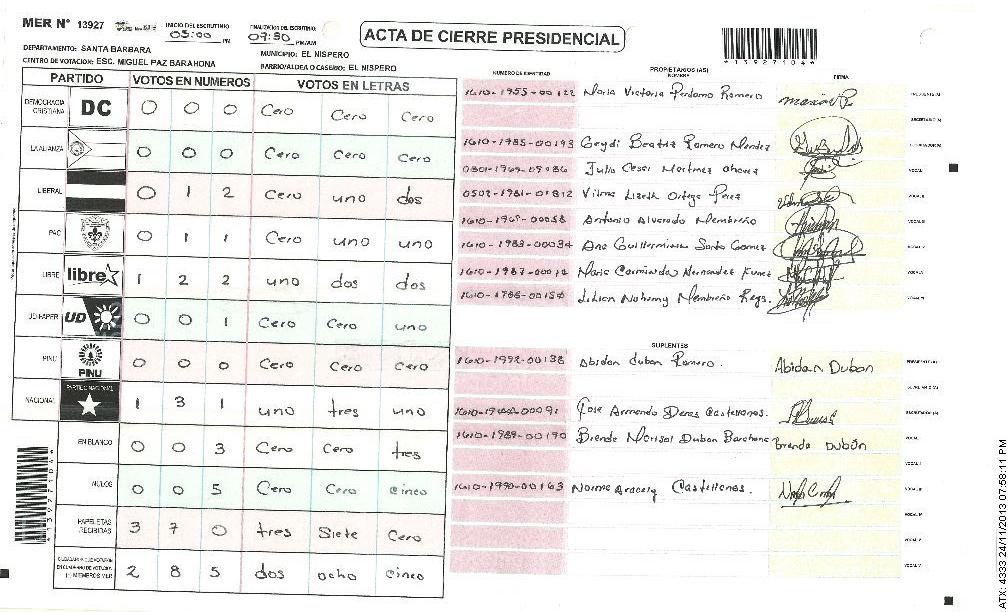 MER N° 13927
INICIO DEL ESCRUTINIO
05:00 PM
FINALIZACION DEL ESCRUTINIO
07:30 PM/AM
ACTA DE CIERRE PRESIDENCIAL
*13927104*
DEPARTAMENTO: SANTA BARBARA
MUNICIPIO: EL NISPERO
CENTRO DE VOTACION: ESC. MIGUEL PAZ BARAHONA
BARRIO/ALDEA O CASERIO: EL NISPERO
PARTIDO VOTOS EN NUMEROS VOTOS EN LETRAS
DEMOCRACIA CRISTIANA DC 0 0 0 Cero Cero Cero
LA ALIANZA 0 0 0 Cero Cero Cero
LIBERAL 0 1 2 Cero uno dos
PAC 0 1 1 Cero uno uno
LIBRE libre 1 2 2 uno dos dos
UD-FAPER UD 0 0 1 Cero Cero uno
PINU PINU 0 0 0 Cero Cero Cero
NACIONAL PARTIDO NACIONAL 1 3 1 uno tres uno
EN BLANCO 0 0 3 Cero Cero tres
NULOS 0 0 5 Cero Cero cinco
PAPELETAS RECIBIDAS 3 7 0 tres Siete Cero
CIUDADANOS QUE VOTARON EN CUADERNO DE VOTACION (+) MIEMBROS MER 2 8 5 dos ocho cinco
NUMERO DE IDENTIDAD PROPIETARIOS (AS) NOMBRE FIRMA
1610-1955-00122 Maria Victoria Perdomo Romero PRESIDENTE(A)
SECRETARIO(A)
1610-1985-00193 Geydi Beatriz Romero Mendez ESCRUTADOR(A)
Julio Cesar Martinez VOCAL I
0502-1981-01812 Vilma Lizeth Ortega Perez VOCAL II
1610-1969-00058 Antonio Alvarado Membreño VOCAL III
1610-1983-00034 Ana Guillermina Santo Gomez VOCAL IV
Maria Carminda Hernandez Funez VOCAL V
Lilian Nohemy Membreño VOCAL VI
SUPLENTES
1610-1992-00138 Abidan Dubon Romero. Abidan Dubon PRESIDENTE(A)
SECRETARIO(A)
Jose Armando Deras Castellanos. ESCRUTADOR(A)
1610-1989-00190 Brenda Marisol Dubon Barahona Brenda Dubón VOCAL I
VOCAL II
1610-1990-00163 Norma Aracely Castellanos. VOCAL III
VOCAL IV
VOCAL V
VOCAL VI
ATX: 4333 24/11/2013 07:58:11 PM